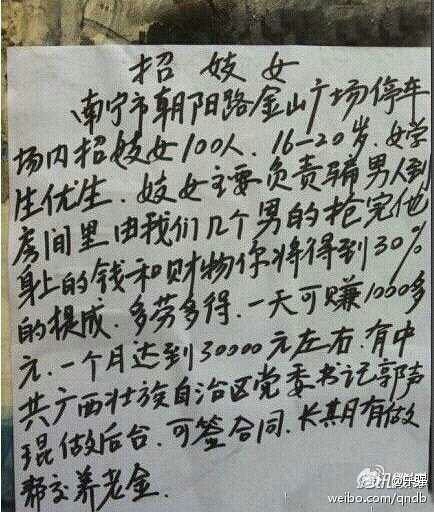 招妓女
南宁市朝阳路金山广场停车
场内招妓女100人.16-20岁.女学
生优生.妓女主要负责骗男人到
房间里由我们几个男的抢完他
身上的钱和财物你将得到30%
的提成.多劳多得.一天可赚1000多
元.一个月达到30000元左右.有中
共广西壮族自治区党委书记郭声
琨做后台.可签合同.长期有做
帮交养老金.
weibo.com/qndb